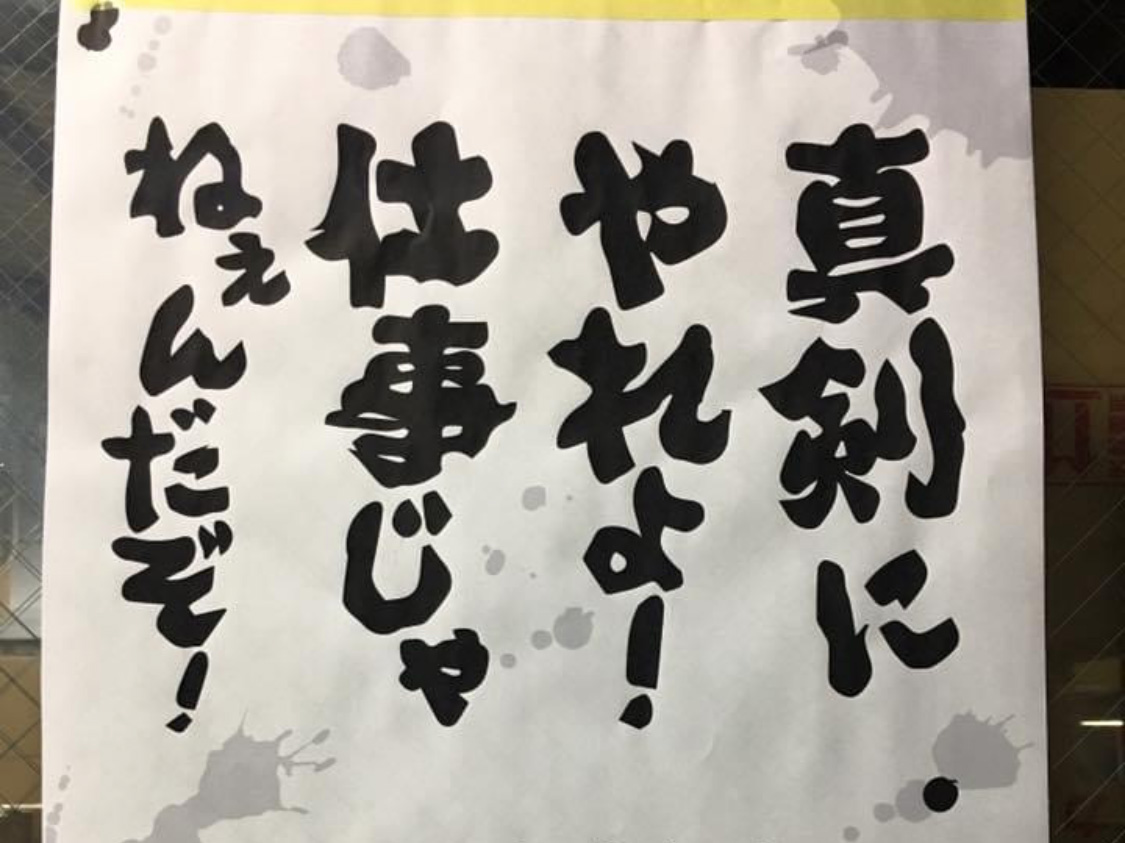 真剣に
やれよ!
仕事じゃ
ねぇんだぞ!